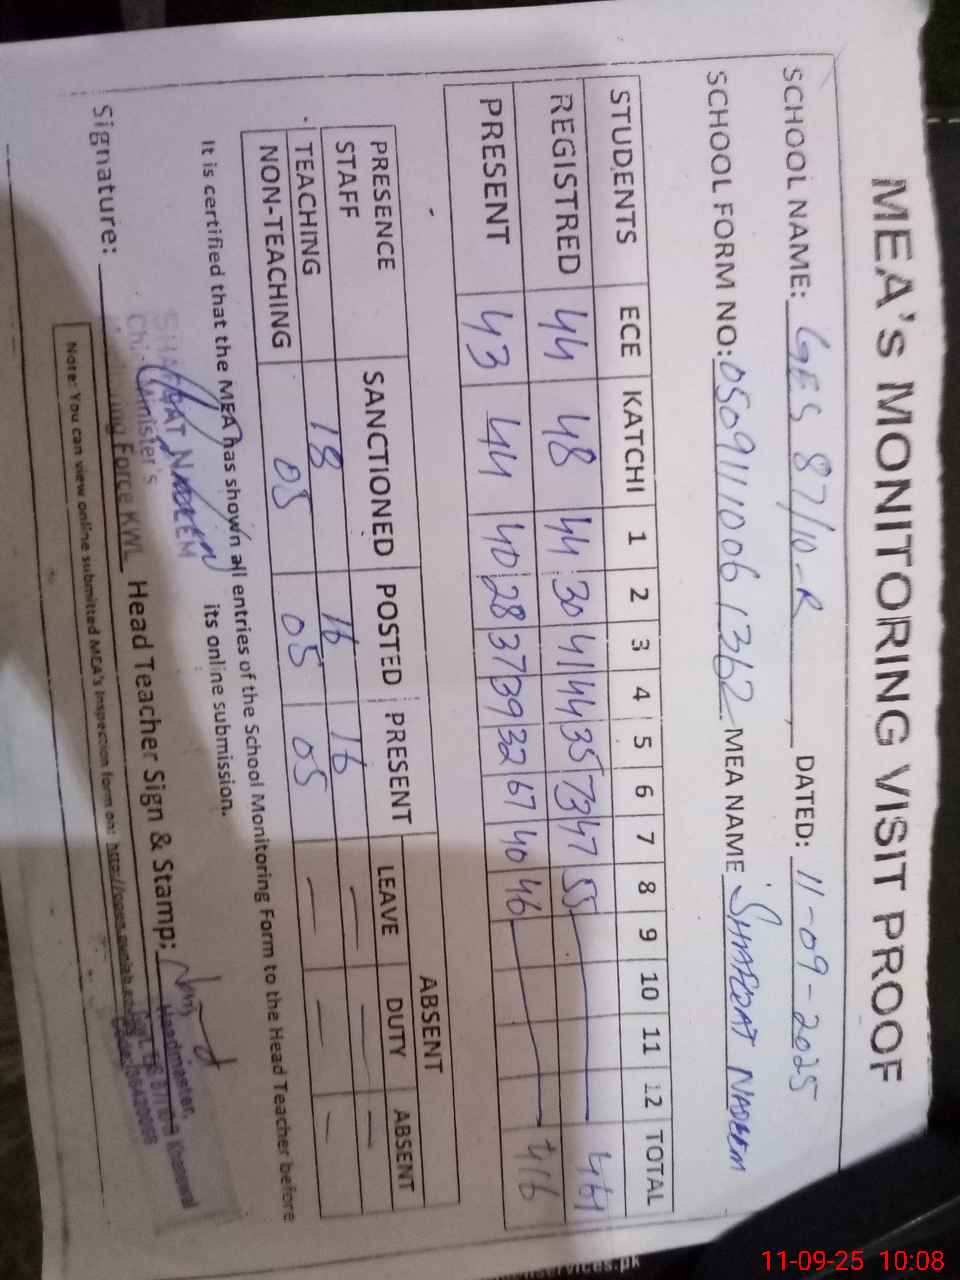 MEA's MONITORING VISIT PROOF
SCHOOL NAME: GES 87/10-R, DATED: 11-09-2025
SCHOOL FORM NO: 0509111006 1362 MEA NAME SHAFQAT NADEEM
STUDENTS ECE KATCHI 1 2 3 4 5 6 7 8 9 10 11 12 TOTAL
REGISTRED 44 48 44 30 41 44 35 73 47 55 461
PRESENT 43 44 40 28 37 39 32 67 40 46 416
PRESENCE SANCTIONED POSTED PRESENT ABSENT
STAFF LEAVE DUTY ABSENT
TEACHING 18 16 16 — — —
NON-TEACHING 05 05 05 — — —
It is certified that the MEA has shown all entries of the School Monitoring Form to the Head Teacher before
its online submission.
Signature: Head Teacher Sign & Stamp:
SHAFQAT NADEEM
Chief Minister's
Monitoring Force KWL
Headmaster,
Note: You can view online submitted MEA's Inspection form on:
11-09-25 10:08